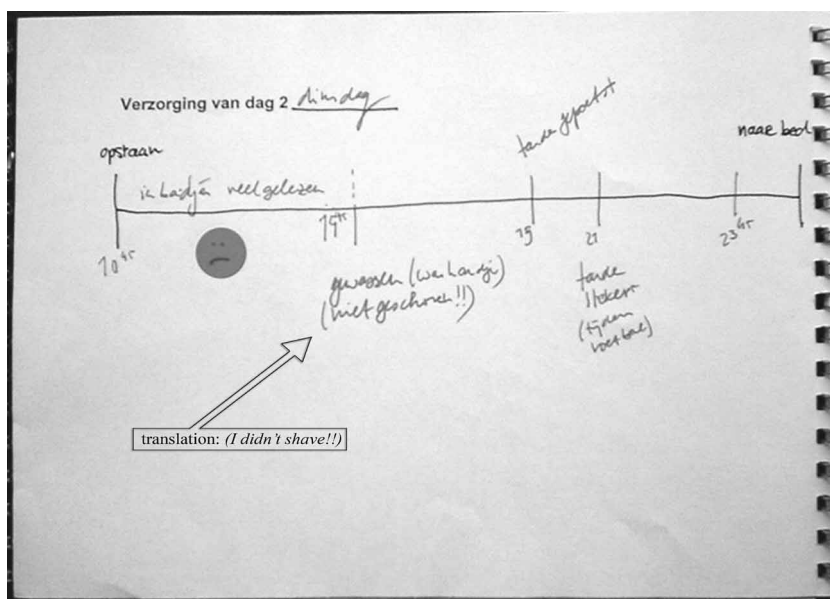 Verzorging van dag 2 dinsdag
opstaan
tande gepoetst
naar bed
veel gelezen
10 uur
15 uur
19
21
23 uur
gewassen (washandje)
(niet geschoren!!)
tande
stokers
(tijdens
voetbal)
translation: (I didn't shave!!)